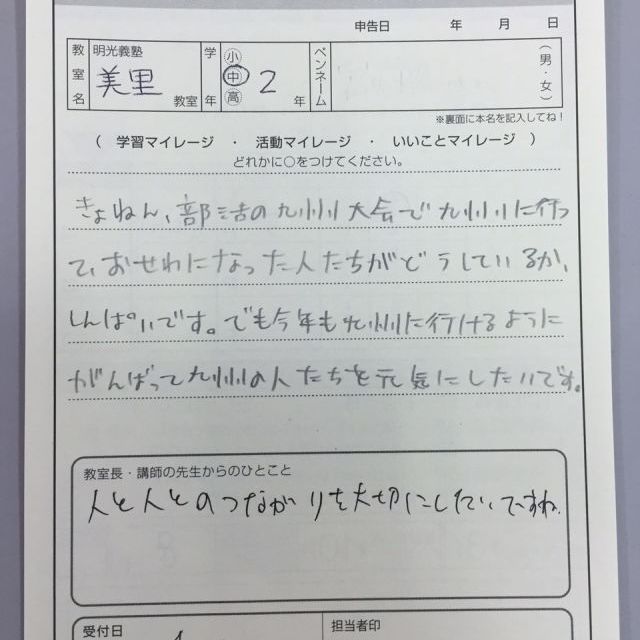 申告日 年 月 日
教室名 明光義塾 美里 教室 学年 小 中 高 2 年 ペンネーム (男・女)
※裏面に本名を記入してね!
( 学習マイレージ ・ 活動マイレージ ・ いいことマイレージ )
どれかに○をつけてください。
きょねん、部活の九州大会で九州に行っ
て、おせわになった人たちがどうしているか、
しんぱいです。でも今年も九州に行けるように
がんばって九州の人たちを元気にしたいです。
教室長・講師の先生からのひとこと
人と人とのつながりを大切にしたいですね。
受付日 担当者印